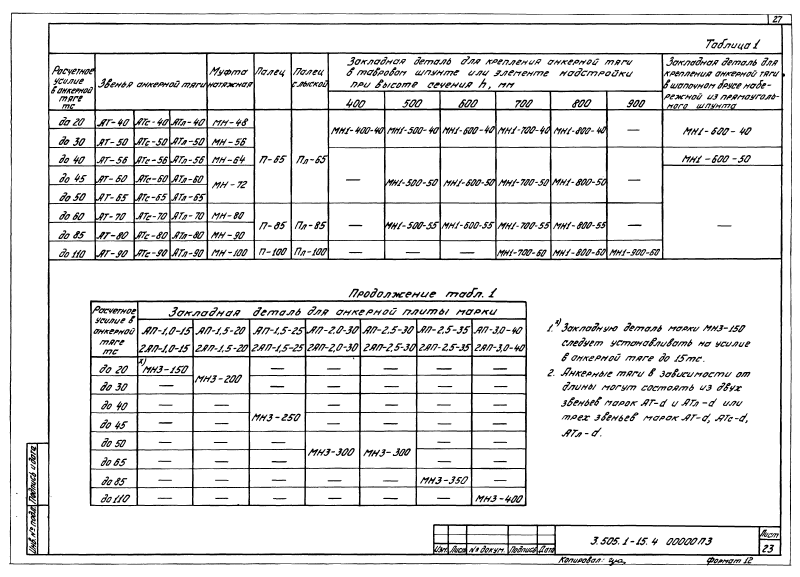 27
Таблица 1
Расчетное усилие в анкерной тяге тс | Звенья анкерной тяги | Муфта натяжная | Палец | Палец с лыской | Закладная деталь для крепления анкерной тяги в тавровом шпунте или элементе надстройки при высоте сечения h, мм | Закладная деталь для крепления анкерной тяги в шапочном брусе набережной из прямоугольного шпунта
400 | 500 | 600 | 700 | 800 | 900
до 20 | АТ-40 | АТс-40 | АТл-40 | МН-48 | П-65 | Пл-65 | МН1-400-40 | МН1-500-40 | МН1-600-40 | МН1-700-40 | МН1-800-40 | — | МН1-600-40
до 30 | АТ-50 | АТс-50 | АТл-50 | МН-56
до 40 | АТ-56 | АТс-56 | АТл-56 | МН-64 | — | МН1-500-50 | МН1-600-50 | МН1-700-50 | МН1-800-50 | — | МН1-600-50
до 45 | АТ-60 | АТс-60 | АТл-60 | МН-72
до 50 | АТ-65 | АТс-65 | АТл-65
до 60 | АТ-70 | АТс-70 | АТл-70 | МН-80 | П-85 | Пл-85 | — | МН1-500-55 | МН1-600-55 | МН1-700-55 | МН1-800-55 | — | —
до 85 | АТ-80 | АТс-80 | АТл-80 | МН-90
до 110 | АТ-90 | АТс-90 | АТл-90 | МН-100 | П-100 | Пл-100 | — | — | — | МН1-700-60 | МН1-800-60 | МН1-900-60
Продолжение табл. 1
Расчетное усилие в анкерной тяге тс | Закладная деталь для анкерной плиты марки
АП-1,0-15 | АП-1,5-20 | АП-1,5-25 | АП-2,0-30 | АП-2,5-30 | АП-2,5-35 | АП-3,0-40
2АП-1,0-15 | 2АП-1,5-20 | 2АП-1,5-25 | 2АП-2,0-30 | 2АП-2,5-30 | 2АП-2,5-35 | 2АП-3,0-40
до 20 | х) МН3-150 | МН3-200 | — | — | — | — | —
до 30 | — | — | — | — | — | —
до 40 | — | — | МН3-250 | — | — | — | —
до 45 | — | — | — | — | — | —
до 50 | — | — | — | МН3-300 | МН3-300 | — | —
до 65 | — | — | — | — | —
до 85 | — | — | — | — | — | МН3-350 | —
до 110 | — | — | — | — | — | — | МН3-400
1. х) Закладную деталь марки МН3-150
следует устанавливать на усилие
в анкерной тяге до 15тс.
2. Анкерные тяги в зависимости от
длины могут состоять из двух
звеньев марок АТ-d и АТл-d или
трех звеньев марок АТ-d, АТс-d,
АТл-d.
Инв. № подл. Подпись и дата
Изм. Лист № докум. Подпись Дата
3.505.1-15.4 00000ПЗ
Лист
23
Копировал:
Формат 12